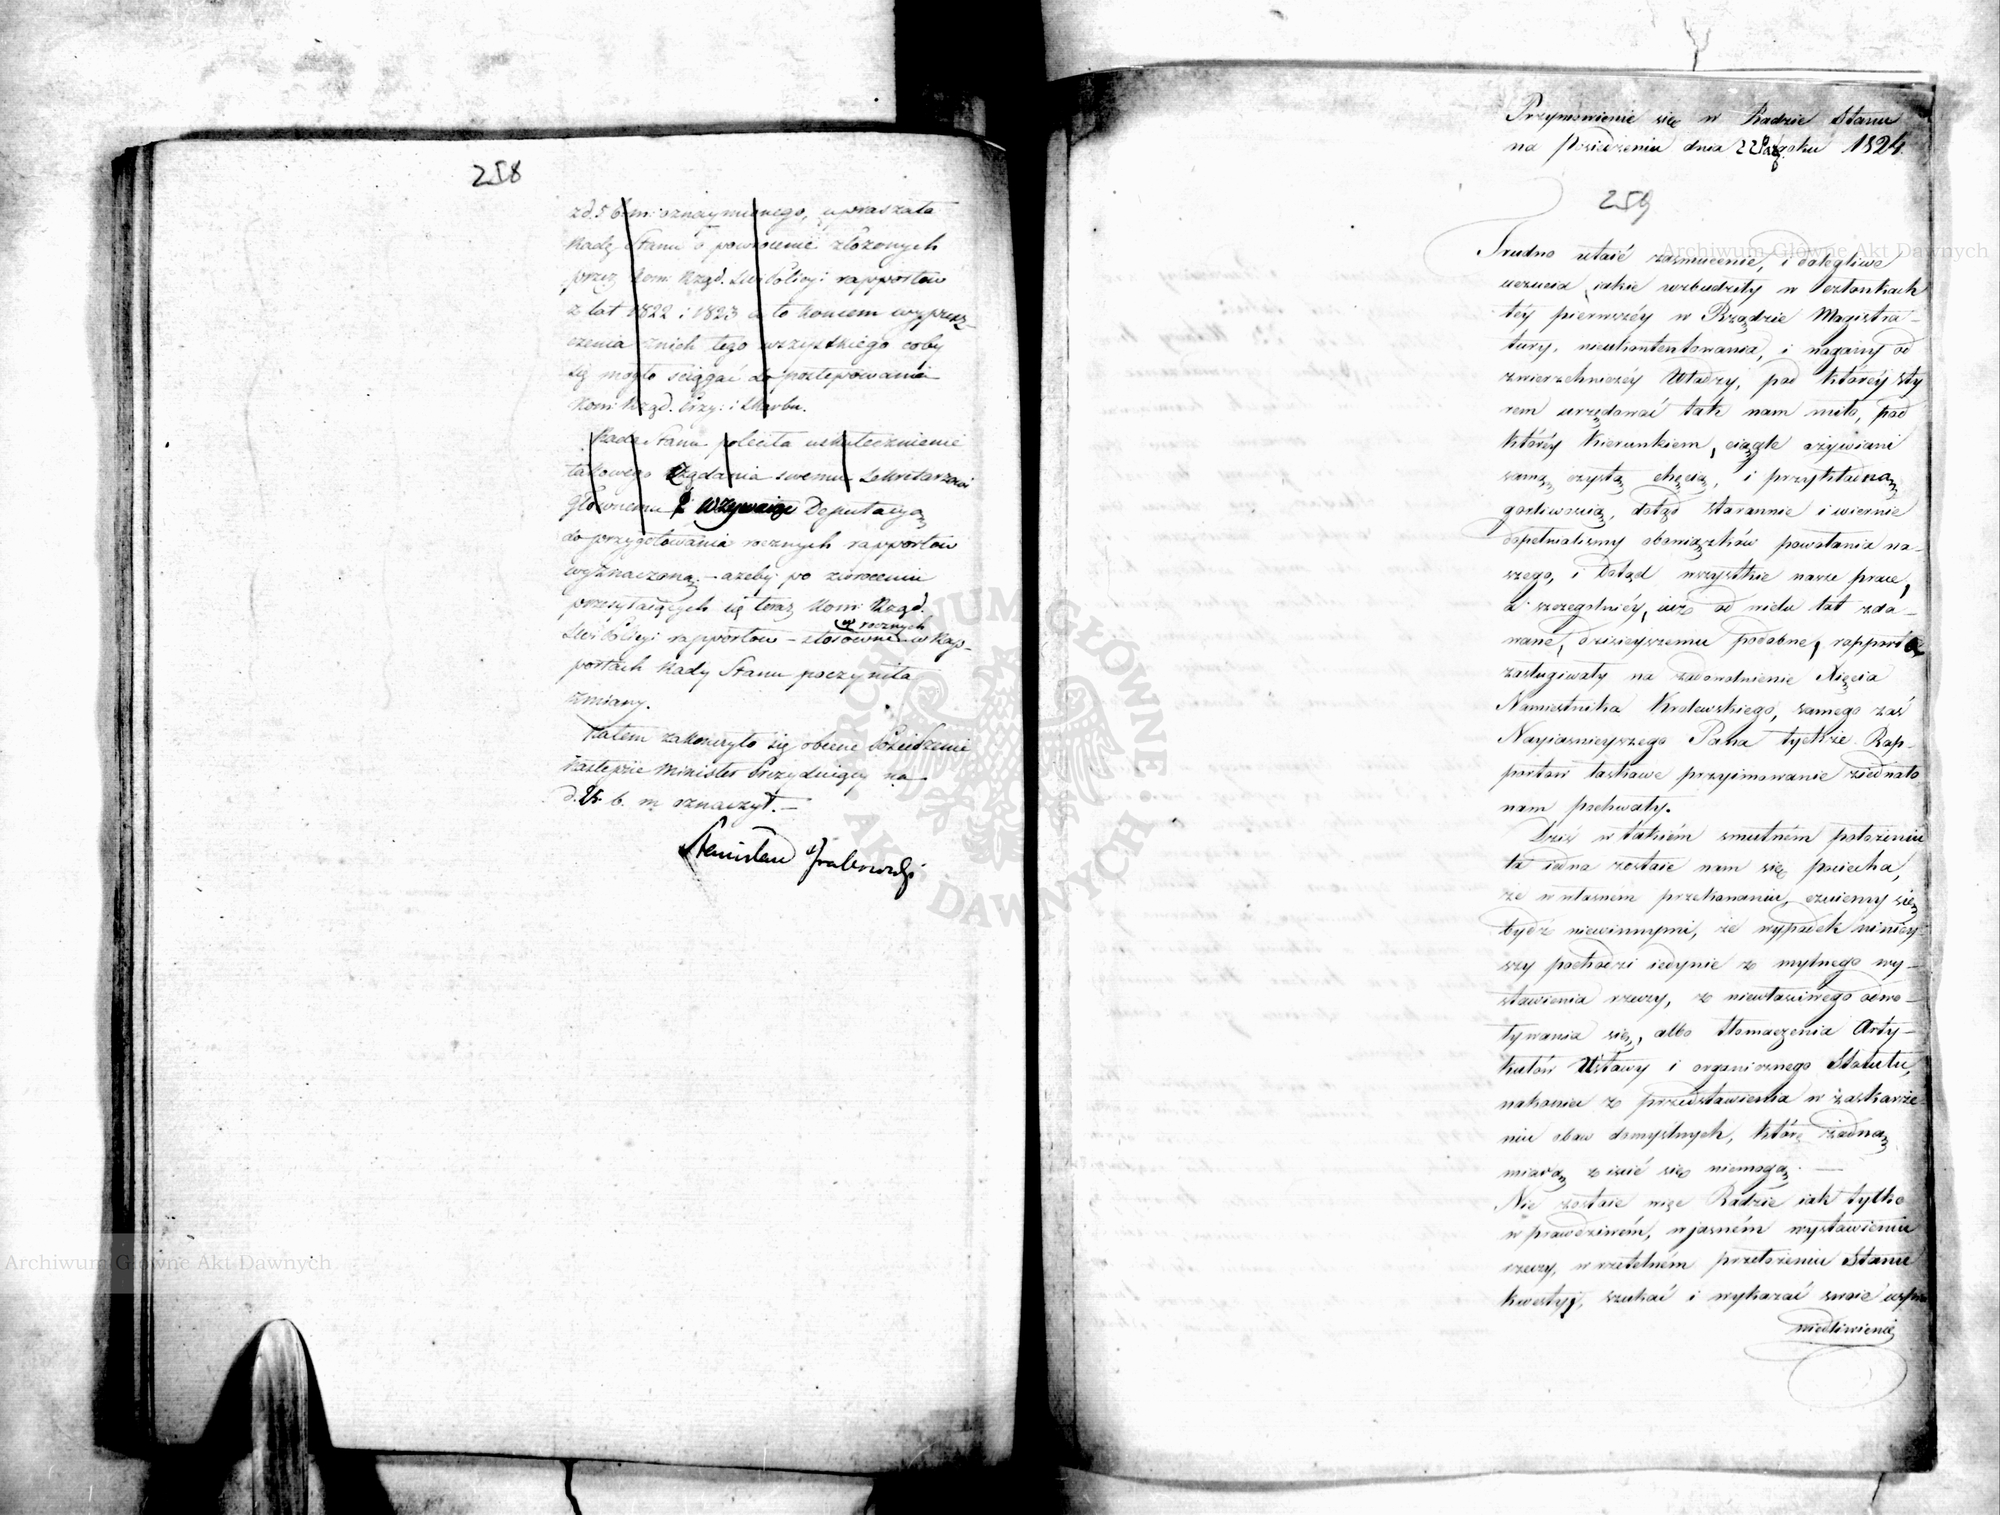 258
zd. 5 b. m. oznaymionego, upraszała
Radę Stanu o powrócenie złożonych
przez Kom: Rząd. Policyi rapportów
z lat 1822 i 1823 a to końcem wyprzą-
czenia z nich tego wszystkiego coby
się mogło ściągać do postępowania
Kom: Rząd. Przy: i Skarbu.
Rada Stanu poleciła uskutecznienie
takowego żądania swemu Sekretarzowi
głównemu wzywaiąc Deputacyą
do przygotowania rocznych rapportów
wyznaczoną. – ażeby po zwróceniu
przesyłaiących się teraz Kom: Rząd.
Policyi rapportów – stosowne w Rap-
w rocznych
portach Rady Stanu poczyniła
zmiany.
Zatem zakończyło się obecne Posiedzenie
następnie Minister Prezyduiący na
d. b. m. oznaczył. –
Stanisław Grabowski
Przymówienie się w Radzie Stanu
na Posiedzeniu dnia 22 Paź. roku 1824.
259
Trudno utaić zasmucenie, i dolegliwe
uczucia, iakie wzbudziły w Członkach
téy pierwszéy w Rządzie Magistra-
tury, nieukontentowania, i nagany od
zwierzchniczéy Władzy, pod któréy ste
rem urzędować tak nam miło, pod
któréy kierunkiem, ciągle ożywiani
samą czystą chęcią, i przykładną
gorliwością, dotąd starannie i wiernie
dopełnialiśmy obowiązków powołania na-
szego, i dotąd wszystkie nasze prace,
a szczególniéy, iuż od wielu lat zda-
wane, dzisieyszemu podobne, rapporta
zasługiwały na zadowolnienie Xięcia
Namiestnika Królewskiego, samego zaś
Nayiaśnieyszego Pana tychże Rap-
portów łaskawe przyimowanie ziednało
nam pochwały.
Dziś w takiém smutném położeniu
ta iedna zostaie nam się pociecha,
że w własném przekonaniu, czuiemy się
bydź niewinnymi, że wypadek niniey-
szy pochodzi iedynie z mylnego wy-
stawienia rzeczy, z niewłaściwego odwo-
ływania się, albo tłomaczenia Arty-
kułów Ustawy i organicznego Statutu,
nakoniec z przedstawienia w zaskarże-
niu obaw domyślnych, które żadną
miarą ziścić się niemogą. —
Nie zostaie więc Radzie iak tylko
w prawdziwém, w jasném wystawieniu
rzeczy, w rzetelném przełożeniu Stanu
kwestyi, szukać i wykazać swoie uspra
wiedliwienie
Archiwum Główne Akt Dawnych
Archiwum Główne Akt Dawnych
ARCHIWUM GŁÓWNE AKT DAWNYCH